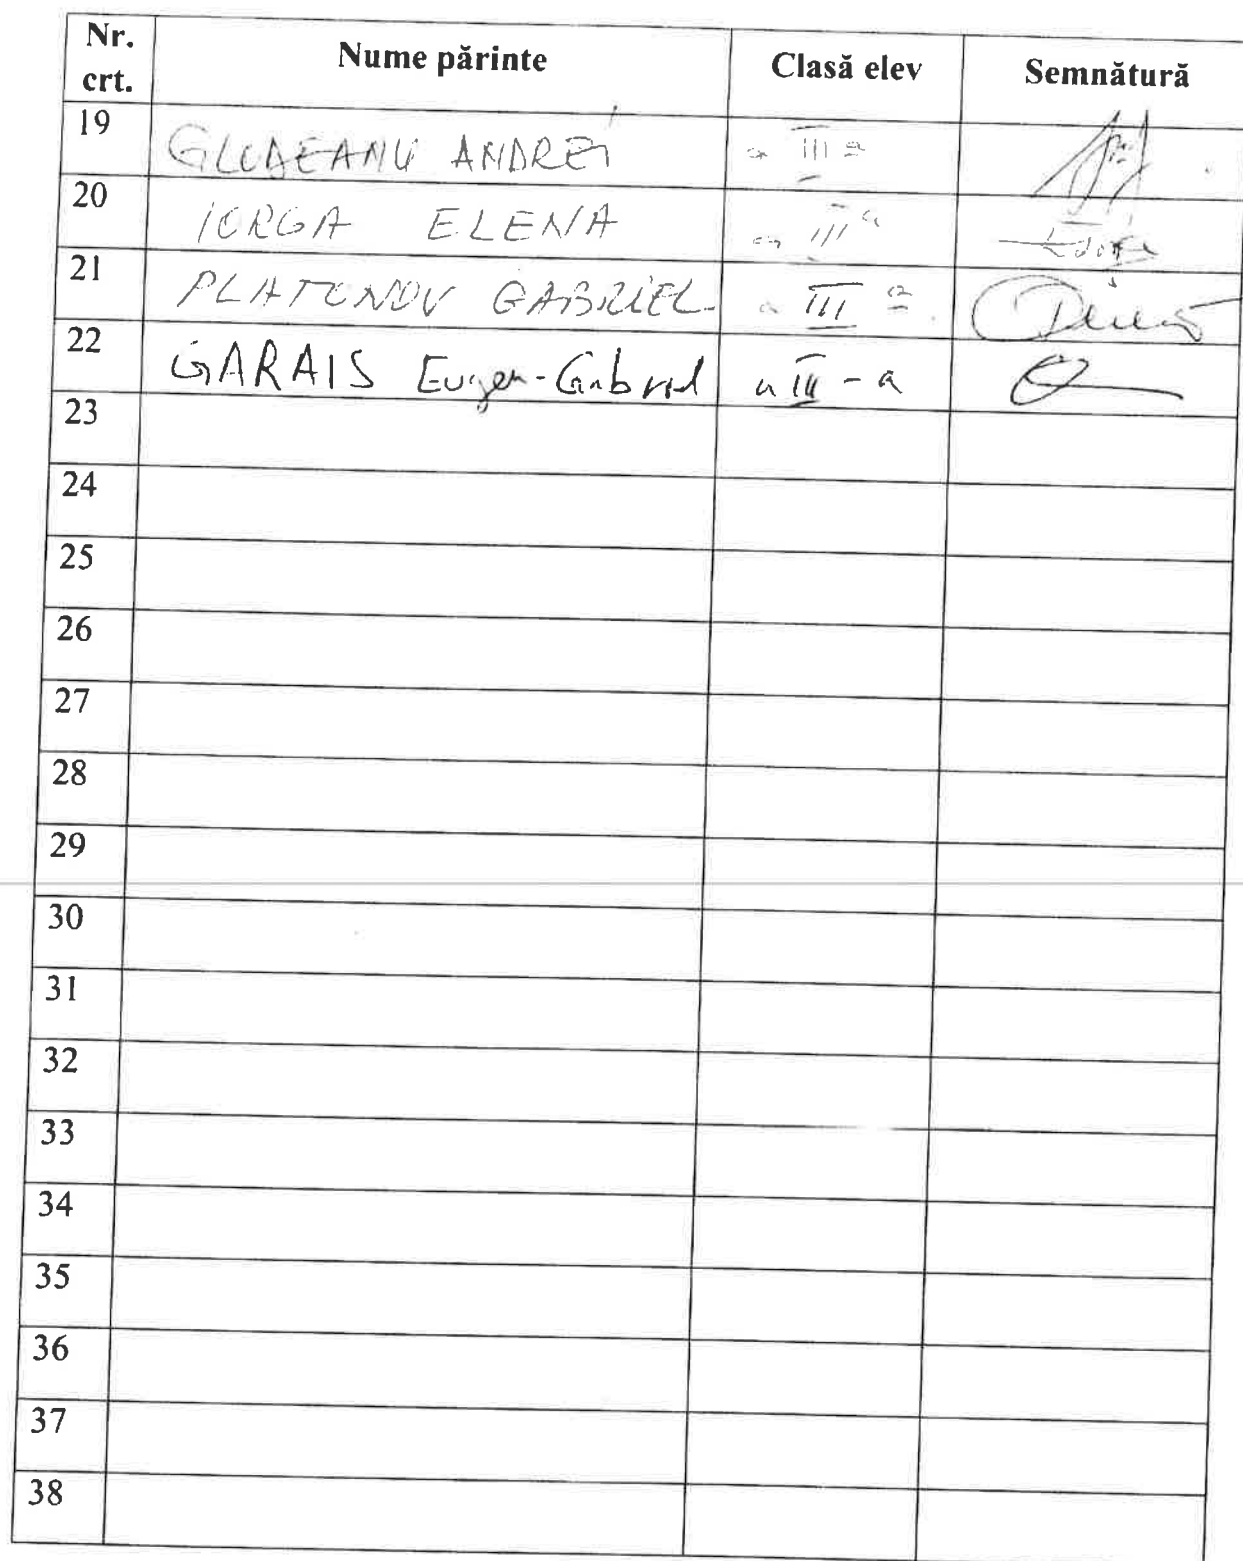 Nr. crt. Nume părinte Clasă elev Semnătură
19 GLODEANU ANDREI a III a
20 IORGA ELENA a III a
21 PLATONOV GABRIEL a III a
22 GARAIS Eugen-Gabriel a III - a
23
24
25
26
27
28
29
30
31
32
33
34
35
36
37
38